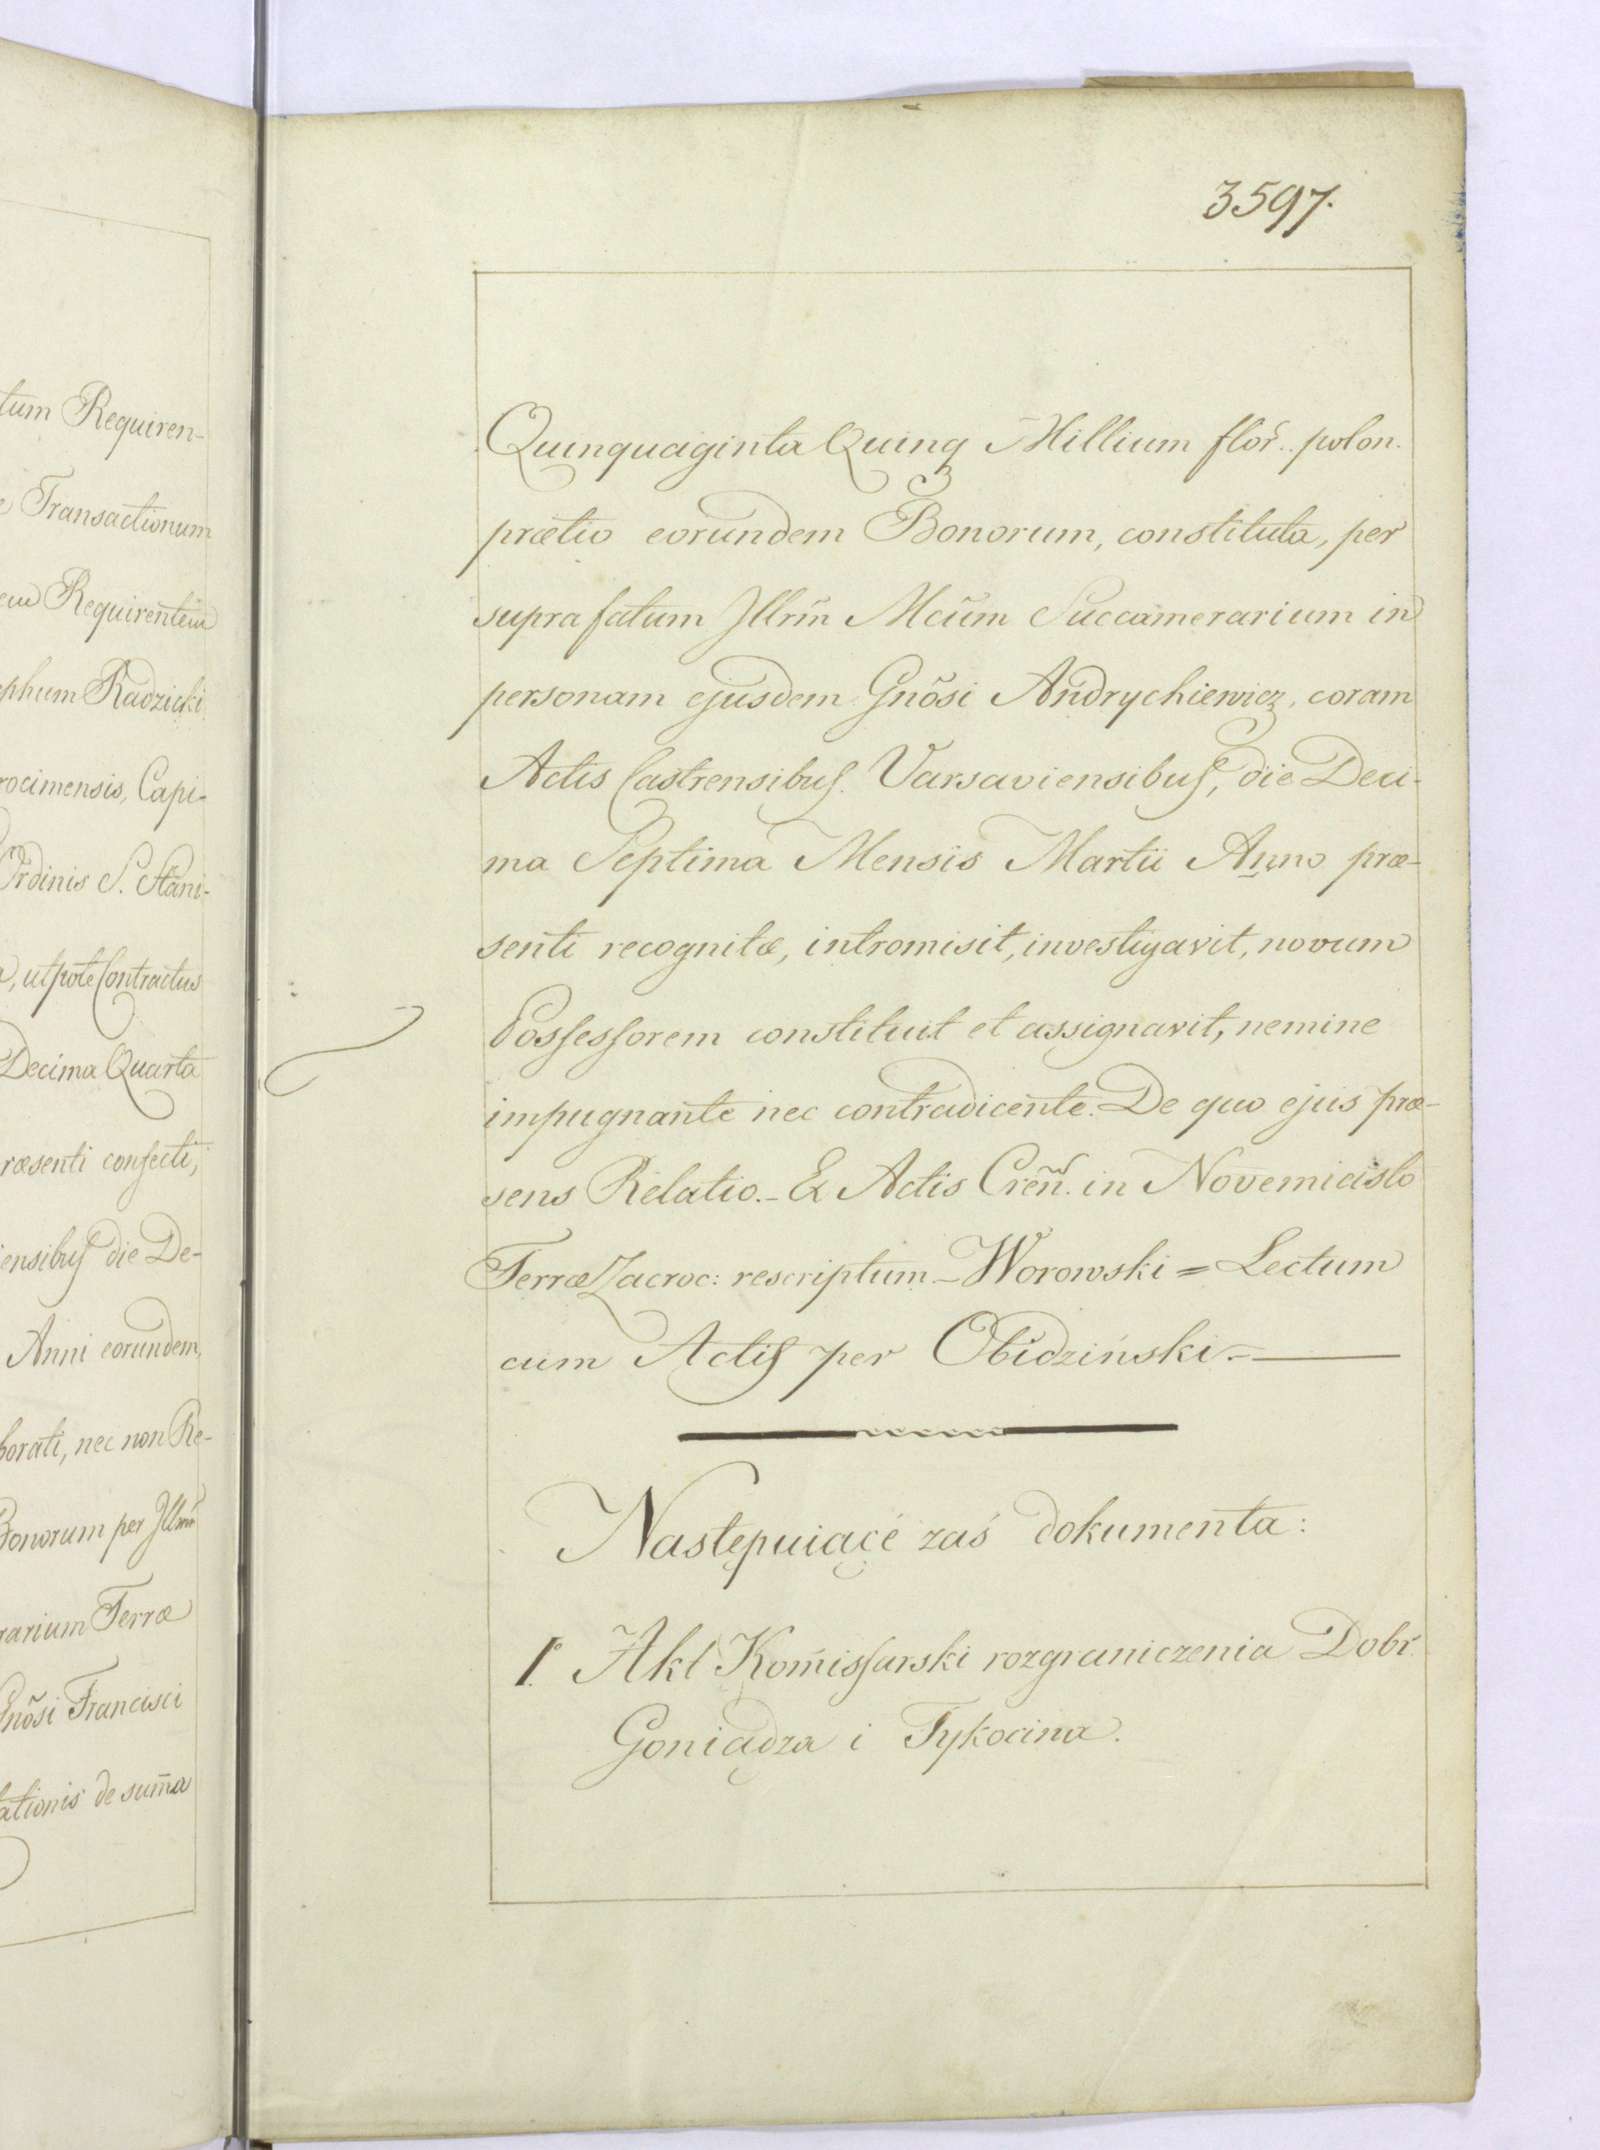 tum Requiren-
e Transactionum
em Requirentem
ephum Radzicki
rocimensis, Capi-
Ordinis S. Stani-
a, utpote Contractus
Decima Quarta
ræsenti confecti,
iensibus die De-
Anni eorundem,
borati, nec non Re-
Bonorum per Jllrm̃
rarium Terræ
Gnõsi Francisci
ationis de sum̃a
3597.
Quinquaginta Quinq Millium flor̃.. polon.
prætio eorundem Bonorum, constituta, per
suprafatum Jllrm̃ Mcũm Succamerarium in
personam ejusdem Gnõsi Andrychiewicz, coram
Actis Castrensibus. Varsaviensibus, die Deci-
ma Septima Mensis Martii Anno præ-
senti recognitæ, intromisit, investigavit, novum
Possessorem constituit et assignavit, nemine
impugnante nec contradicente. De quo ejus præ-
sens Relatio. - Ex Actis Creñ. in Novemiasto
Terræ Zacroc: rescriptum - Worowski = Lectum
cum Actis per Obidziński. -
Następuiącé zaś dokumenta:
1º. Akt Kom̃issarski rozgraniczenia Dobr
Goniądza i Tykocina.